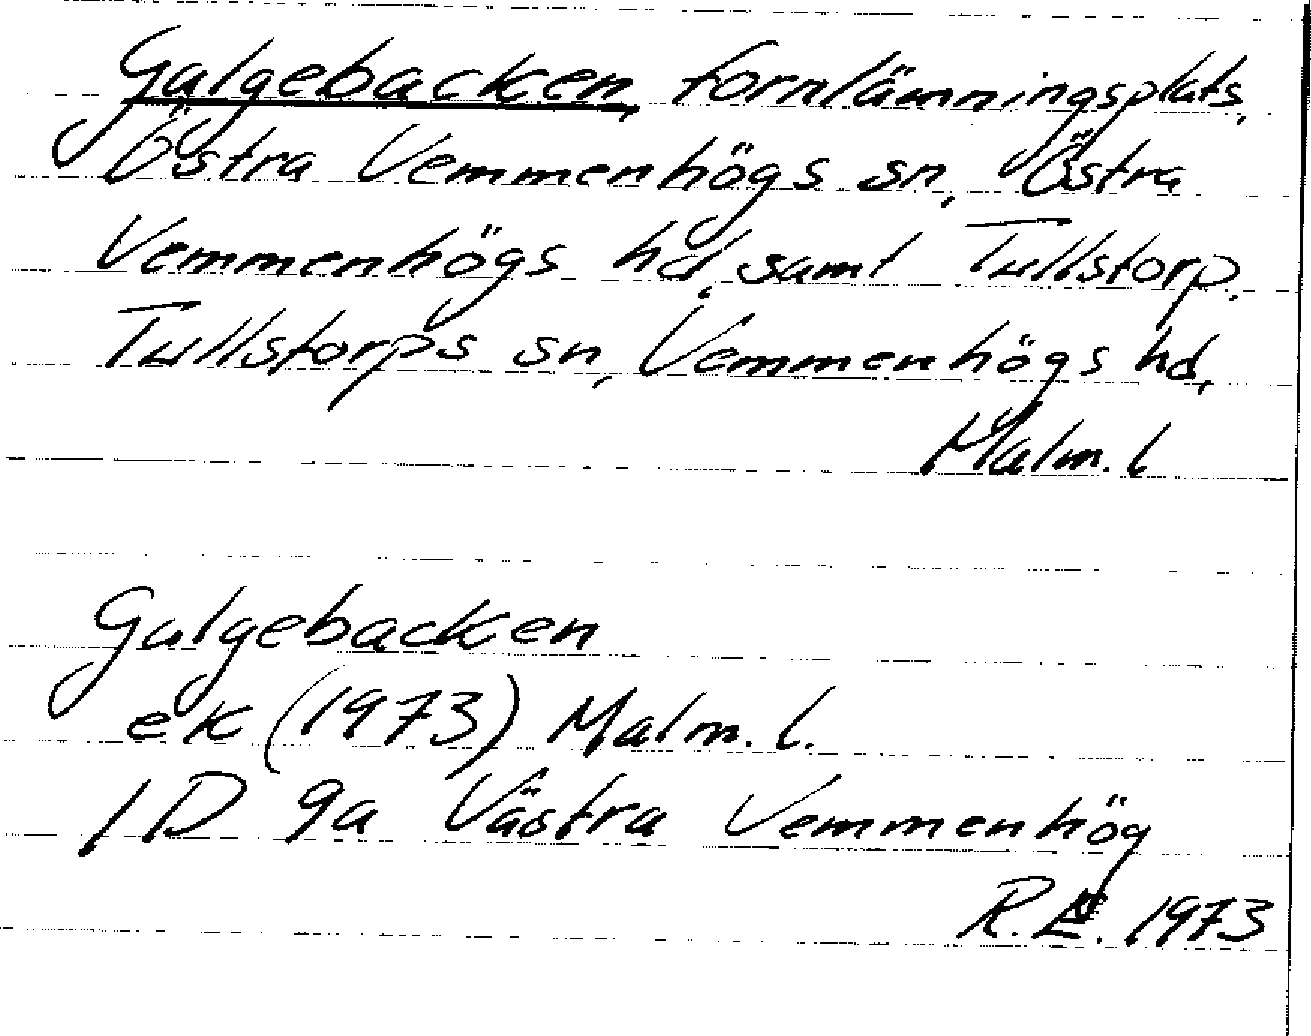 Galgebacken, fornlämningsplats,
Östra Vemmenhögs sn, Östra
Vemmenhögs hd, samt Tullstorp,
Tullstorps sn, Vemmenhögs hd,
Malm. l
Galgebacken
ek (1973) Malm. l.
1D 9a Västra Vemmenhög
R.E. 1973